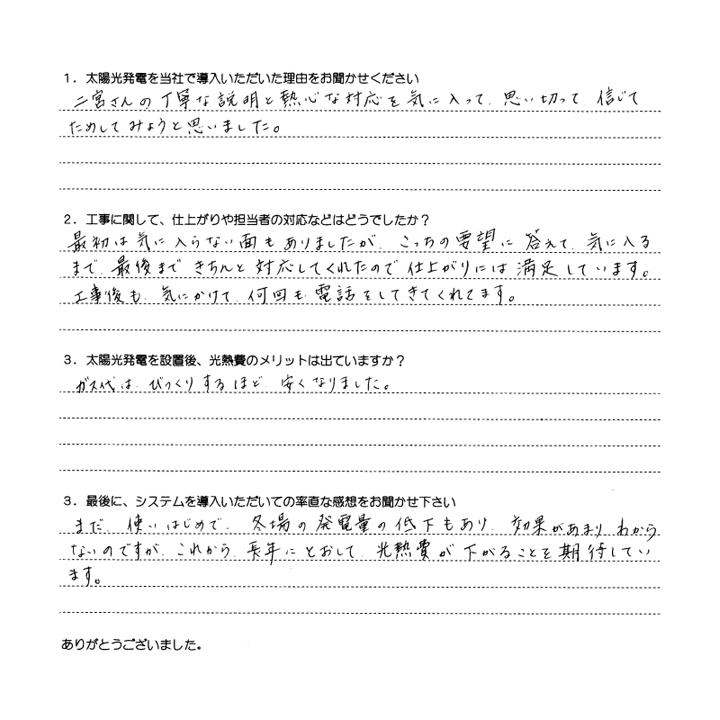 1．太陽光発電を当社で導入いただいた理由をお聞かせください
二宮さんの丁寧な説明と熱心な対応を気に入って、思い切って、信じて
ためしてみようと思いました。
2．工事に関して、仕上がりや担当者の対応などはどうでしたか？
最初は気に入らない面もありましたが、こっちの要望に答えて、気に入る
まで、最後まできちんと対応してくれたので仕上がりには満足しています。
工事後も、気にかけて、何回も電話をしてきてくれてます。
3．太陽光発電を設置後、光熱費のメリットは出ていますか？
ガス代は、びっくりするほど、安くなりました。
3．最後に、システムを導入いただいての率直な感想をお聞かせ下さい
まだ、使いはじめで、冬場の発電量の低下もあり、効果があまりわから
ないのですが、これから、長年にとおして、光熱費が下がることを期待してい
ます。
ありがとうございました。